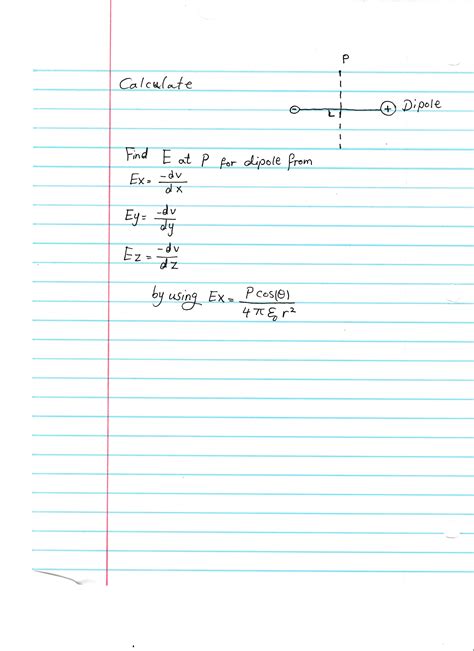 P
Calculate
⊖ L ⊕ Dipole
Find E at P for dipole from
Ex = -dv/dx
Ey = -dv/dy
Ez = -dv/dz
by using Ex = P cos(θ)/4πε₀r²